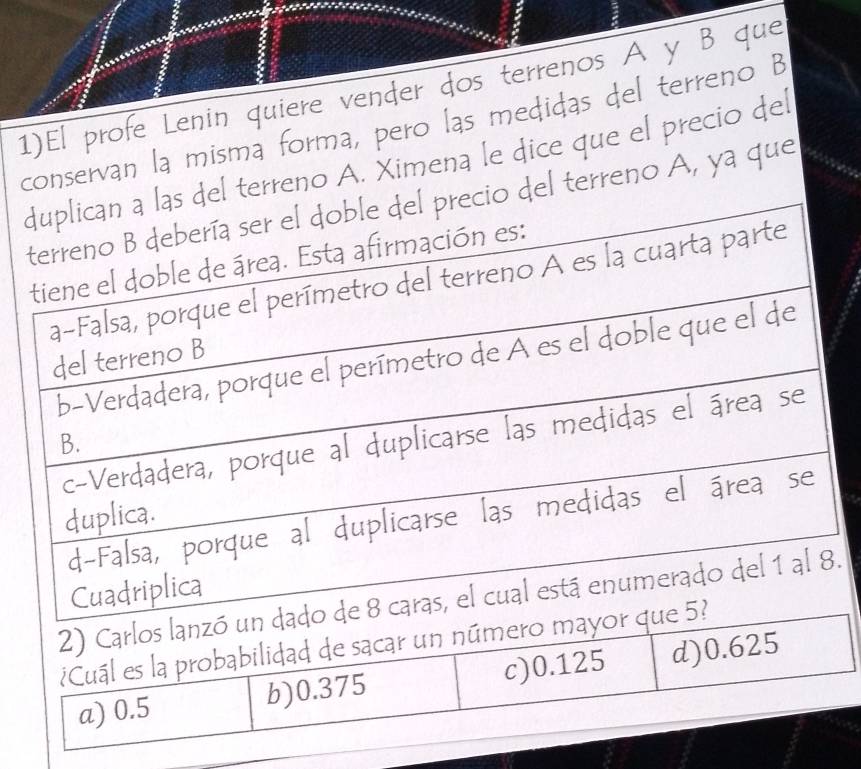 1)El profe Lenin quiere vender dos terrenos A y B que
conservan la misma forma, pero las medidas del terreno B
duplican a las del terreno A. Ximena le dice que el precio del
terreno B debería ser el doble del precio del terreno A, ya que
tiene el doble de área. Esta afirmación es:
a-Falsa, porque el perímetro del terreno A es la cuarta parte
del terreno B
b-Verdadera, porque el perímetro de A es el doble que el de
B.
c-Verdadera, porque al duplicarse las medidas el área se
duplica.
d-Falsa, porque al duplicarse las medidas el área se
Cuadriplica
2) Carlos lanzó un dado de 8 caras, el cual está enumerado del 1 al 8.
¿Cuál es la probabilidad de sacar un número mayor que 5?
a) 0.5 b)0.375 c)0.125 d)0.625